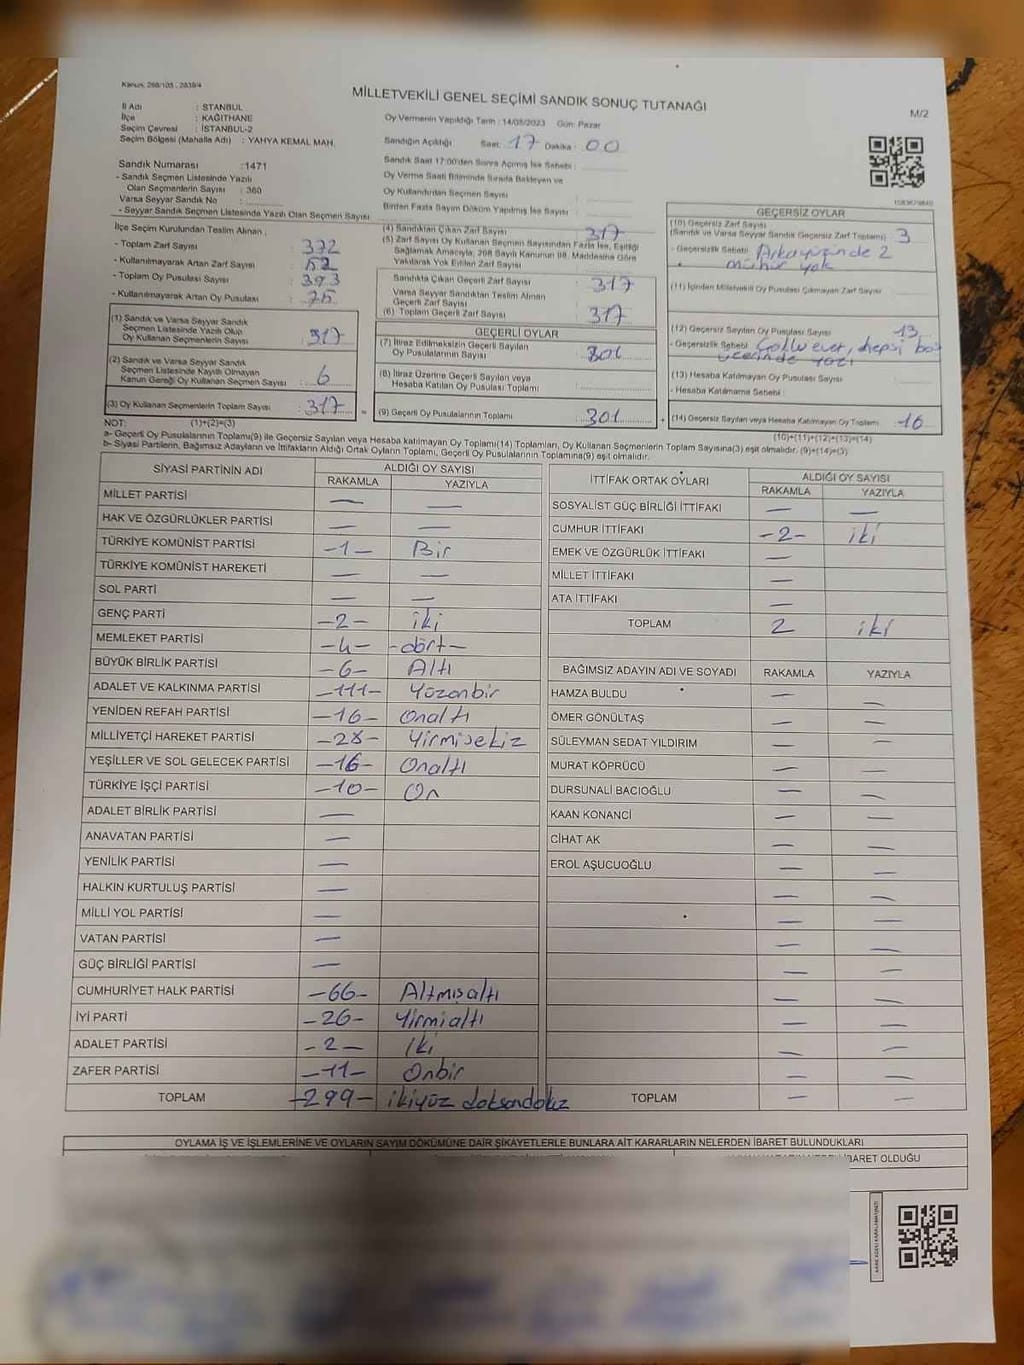 Kanun. 298/105 - 2839/4
MİLLETVEKİLİ GENEL SEÇİMİ SANDIK SONUÇ TUTANAĞI
M/2
İl Adı : İSTANBUL
İlçe : KAĞITHANE
Seçim Çevresi : İSTANBUL-2
Seçim Bölgesi (Mahalle Adı) : YAHYA KEMAL MAH.
Sandık Numarası : 1471
- Sandık Seçmen Listesinde Yazılı
Olan Seçmenlerin Sayısı : 360
Varsa Seyyar Sandık No :
- Seyyar Sandık Seçmen Listesinde Yazılı Olan Seçmen Sayısı
Oy Vermenin Yapıldığı Tarih : 14/05/2023 Gün: Pazar
Sandığın Açıldığı Saat: 17 Dakika : 00
Sandık Saat 17:00'den Sonra Açılmış İse Sebebi :
Oy Verme Saati Bitiminde Sırada Bekleyen ve
Oy Kullandırılan Seçmen Sayısı
Birden Fazla Sayım Döküm Yapılmış İse Sayısı :
İlçe Seçim Kurulundan Teslim Alınan :
- Toplam Zarf Sayısı : 372
- Kullanılmayarak Artan Zarf Sayısı : 52
- Toplam Oy Pusulası Sayısı : 393
- Kullanılmayarak Artan Oy Pusulası : 75
(1) Sandık ve Varsa Seyyar Sandık
Seçmen Listesinde Yazılı Olup
Oy Kullanan Seçmenlerin Sayısı : 317
(2) Sandık ve Varsa Seyyar Sandık
Seçmen Listesinde Kayıtlı Olmayan
Kanun Gereği Oy Kullanan Seçmen Sayısı : 6
(3) Oy Kullanan Seçmenlerin Toplam Sayısı : 317 =
(4) Sandıktan Çıkan Zarf Sayısı : 317
(5) Zarf Sayısı Oy Kullanan Seçmen Sayısından Fazla İse, Eşitliği
Sağlamak Amacıyla, 298 Sayılı Kanunun 98. Maddesine Göre
Yakılarak Yok Edilen Zarf Sayısı
Sandıkta Çıkan Geçerli Zarf Sayısı : 317
Varsa Seyyar Sandıktan Teslim Alınan
Geçerli Zarf Sayısı
(6) Toplam Geçerli Zarf Sayısı : 317
GEÇERLİ OYLAR
(7) İtiraz Edilmeksizin Geçerli Sayılan
Oy Pusulalarının Sayısı : 301
(8) İtiraz Üzerine Geçerli Sayılan veya
Hesaba Katılan Oy Pusulası Toplamı :
(9) Geçerli Oy Pusulalarının Toplamı : 301 +
GEÇERSİZ OYLAR
(10) Geçersiz Zarf Sayısı
(Sandık ve Varsa Seyyar Sandık Geçersiz Zarf Toplamı) : 3
- Geçersizlik Sebebi : Arka yüzünde 2
mühür yok
(11) İçinden Milletvekili Oy Pusulası Çıkmayan Zarf Sayısı :
(12) Geçersiz Sayılan Oy Pusulası Sayısı : 13
- Geçersizlik Sebebi : Çoklu evet, hepsi boş
üzerinde yazı
(13) Hesaba Katılmayan Oy Pusulası Sayısı :
- Hesaba Katılmama Sebebi :
(14) Geçersiz Sayılan veya Hesaba Katılmayan Oy Toplamı : 16
NOT: (1)+(2)=(3)
(10)+(11)+(12)+(13)=(14)
a- Geçerli Oy Pusulaları Toplamı(9) ile Geçersiz Sayılan veya Hesaba katılmayan Oy Toplamı(14) Toplamları, Oy Kullanan Seçmenlerin Toplam Sayısına(3) eşit olmalıdır. (9)+(14)=(3)
b- Siyasi Partilerin, Bağımsız Adayların ve İttifakların Aldığı Ortak Oyların Toplamı, Geçerli Oy Pusulalarının Toplamına(9) eşit olmalıdır.
SİYASİ PARTİNİN ADI ALDIĞI OY SAYISI
RAKAMLA YAZIYLA
MİLLET PARTİSİ — —
HAK VE ÖZGÜRLÜKLER PARTİSİ — —
TÜRKİYE KOMÜNİST PARTİSİ -1- Bir
TÜRKİYE KOMÜNİST HAREKETİ — —
SOL PARTİ — —
GENÇ PARTİ -2- iki
MEMLEKET PARTİSİ -4- -dört-
BÜYÜK BİRLİK PARTİSİ -6- Altı
ADALET VE KALKINMA PARTİSİ -111- Yüzonbir
YENİDEN REFAH PARTİSİ -16- Onaltı
MİLLİYETÇİ HAREKET PARTİSİ -28- Yirmisekiz
YEŞİLLER VE SOL GELECEK PARTİSİ -16- Onaltı
TÜRKİYE İŞÇİ PARTİSİ -10- On
ADALET BİRLİK PARTİSİ —
ANAVATAN PARTİSİ —
YENİLİK PARTİSİ —
HALKIN KURTULUŞ PARTİSİ —
MİLLİ YOL PARTİSİ —
VATAN PARTİSİ —
GÜÇ BİRLİĞİ PARTİSİ —
CUMHURİYET HALK PARTİSİ -66- Altmışaltı
İYİ PARTİ -26- Yirmialtı
ADALET PARTİSİ -2- İki
ZAFER PARTİSİ -11- Onbir
TOPLAM -299- ikiyüz doksandokuz
İTTİFAK ORTAK OYLARI ALDIĞI OY SAYISI
RAKAMLA YAZIYLA
SOSYALİST GÜÇ BİRLİĞİ İTTİFAKI — —
CUMHUR İTTİFAKI -2- iki
EMEK VE ÖZGÜRLÜK İTTİFAKI —
MİLLET İTTİFAKI —
ATA İTTİFAKI —
TOPLAM 2 iki
BAĞIMSIZ ADAYIN ADI VE SOYADI RAKAMLA YAZIYLA
HAMZA BULDU — —
ÖMER GÖNÜLTAŞ — —
SÜLEYMAN SEDAT YILDIRIM — —
MURAT KÖPRÜCÜ — —
DURSUNALİ BACIOĞLU — —
KAAN KONANCİ — —
CİHAT AK — —
EROL AŞUCUOĞLU — —
TOPLAM — —
OYLAMA İŞ VE İŞLEMLERİNE VE OYLARIN SAYIM DÖKÜMÜNE DAİR ŞİKAYETLERLE BUNLARA AİT KARARLARIN NELERDEN İBARET BULUNDUKLARI
İBARET OLDUĞU